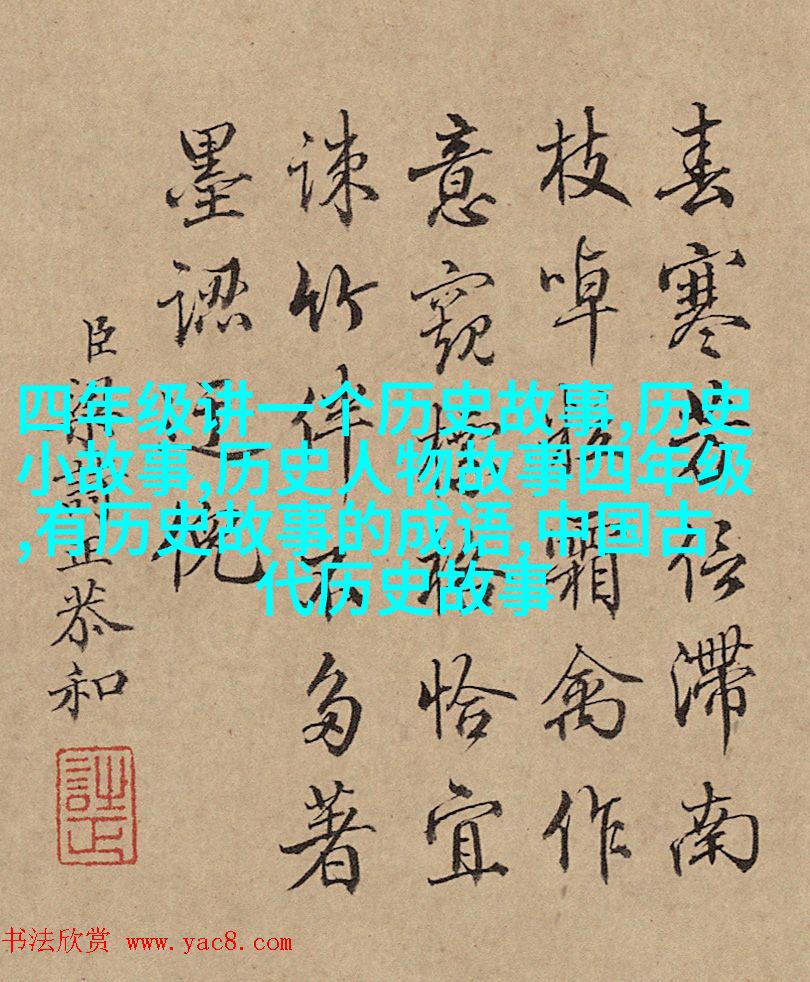 春寒芳信滯南
枝啅霜禽作
意窺恰宜
竹伴不多著
墨
臣梁詩正恭和
四年级讲一个历史故事,历史
小故事,历史人物故事四年级
,有历史故事的成语,中国古
代历史故事
书法欣赏 www.yac8.com